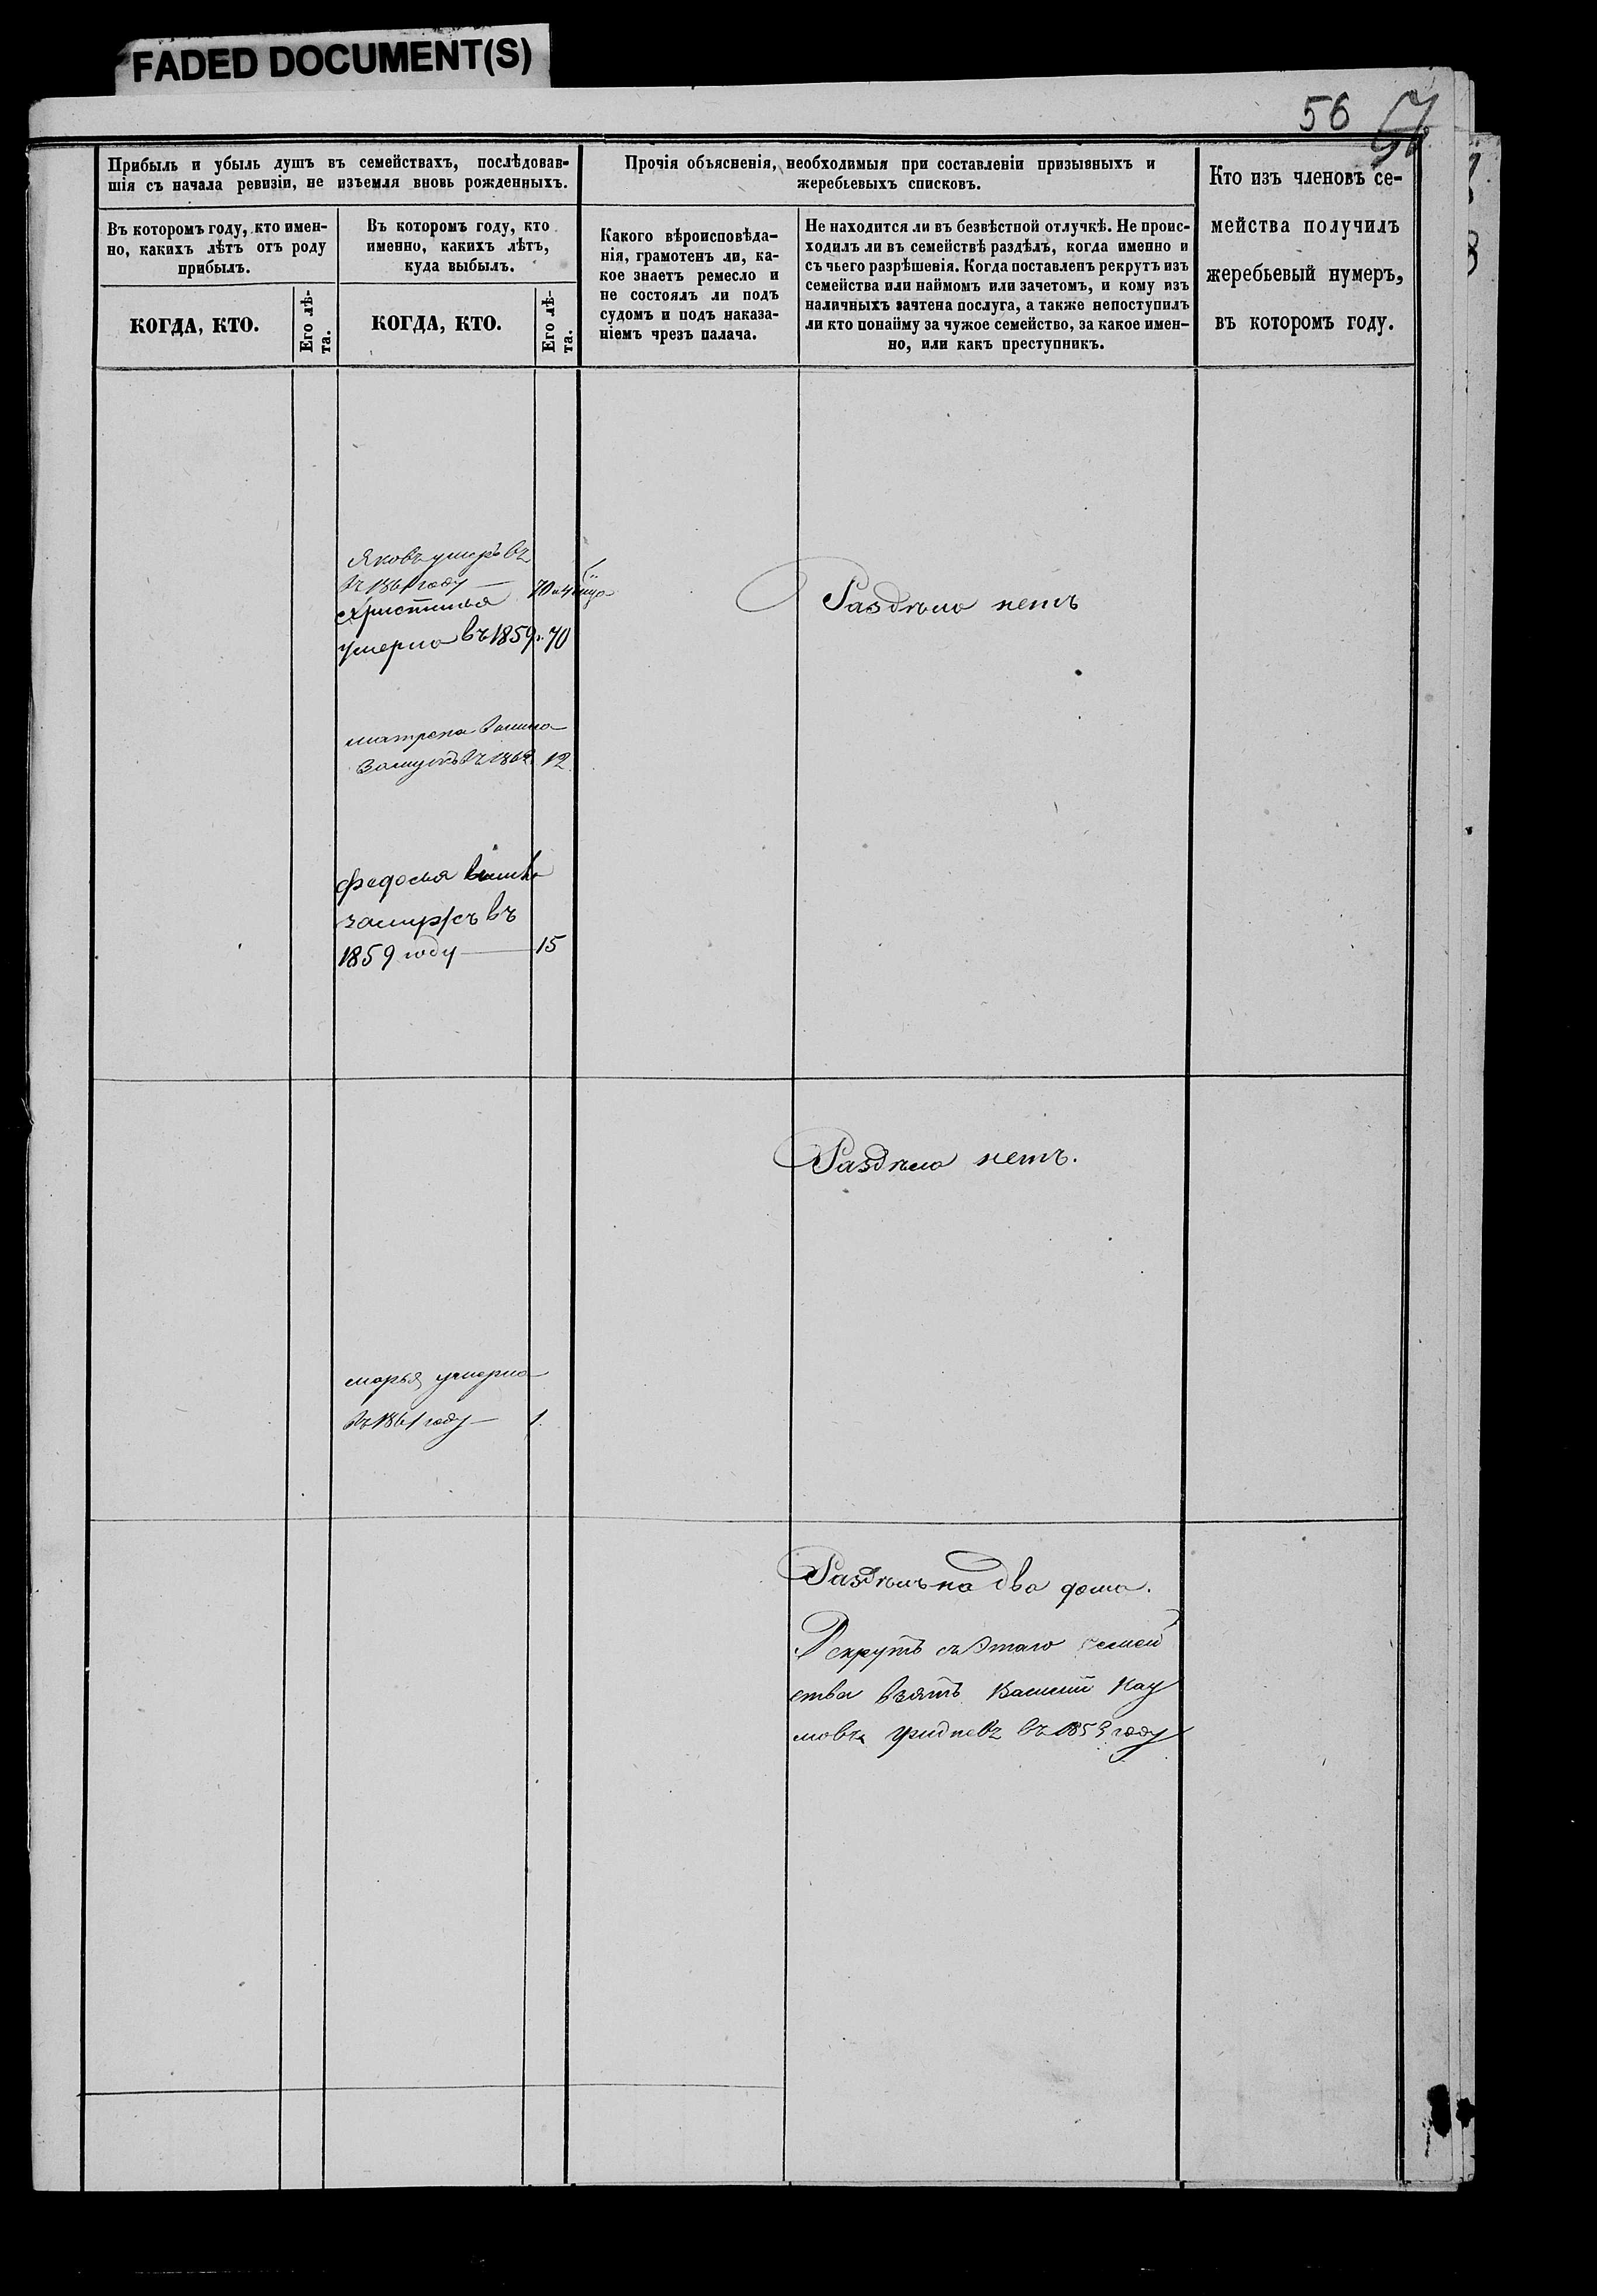 FADED DOCUMENT(S)
56
Прибыль и убыль душъ въ семействахъ, послѣдовав-
шія съ начала ревизіи, не изъемля вновь рожденныхъ.
Прочія объясненія, необходимыя при составленіи призывныхъ и
жеребьевыхъ списковъ.
Кто изъ членовъ се-
мейства получилъ
жеребьевый нумеръ,
въ которомъ году.
Въ которомъ году, кто имен-
но, какихъ лѣтъ отъ роду
прибылъ.
Въ которомъ году, кто
именно, какихъ лѣтъ,
куда выбылъ.
Какого вѣроисповѣда-
нія, грамотенъ ли, ка-
кое знаетъ ремесло и
не состоялъ ли подъ
судомъ и подъ наказа-
ніемъ чрезъ палача.
Не находится ли въ безвѣстной отлучкѣ. Не проис-
ходилъ ли въ семействѣ раздѣлъ, когда именно и
съ чьего разрѣшенія. Когда поставленъ рекрутъ изъ
семейства или наймомъ или зачетомъ, и кому изъ
наличныхъ зачтена послуга, а также непоступилъ
ли кто понайму за чужое семейство, за какое имен-
но, или какъ преступникъ.
КОГДА, КТО.
Его лѣ-
та.
КОГДА, КТО.
Его лѣ-
та.
Яковъ умеръ въ
въ 1861 году — 70
Христинья
умерла въ 1859 г. 70
Раздѣла нетъ
матрена вышла
Замужъ въ 1862 12
федосья вышла
замужъ въ
1859 году — 15
Раздѣла нетъ.
марья умерла
въ 1861 году — 1.
Раздѣлъ на два дома.
Рекрутъ съ этаго семей
ства взятъ Василий Нау
мовъ Гридневъ въ 1853 году